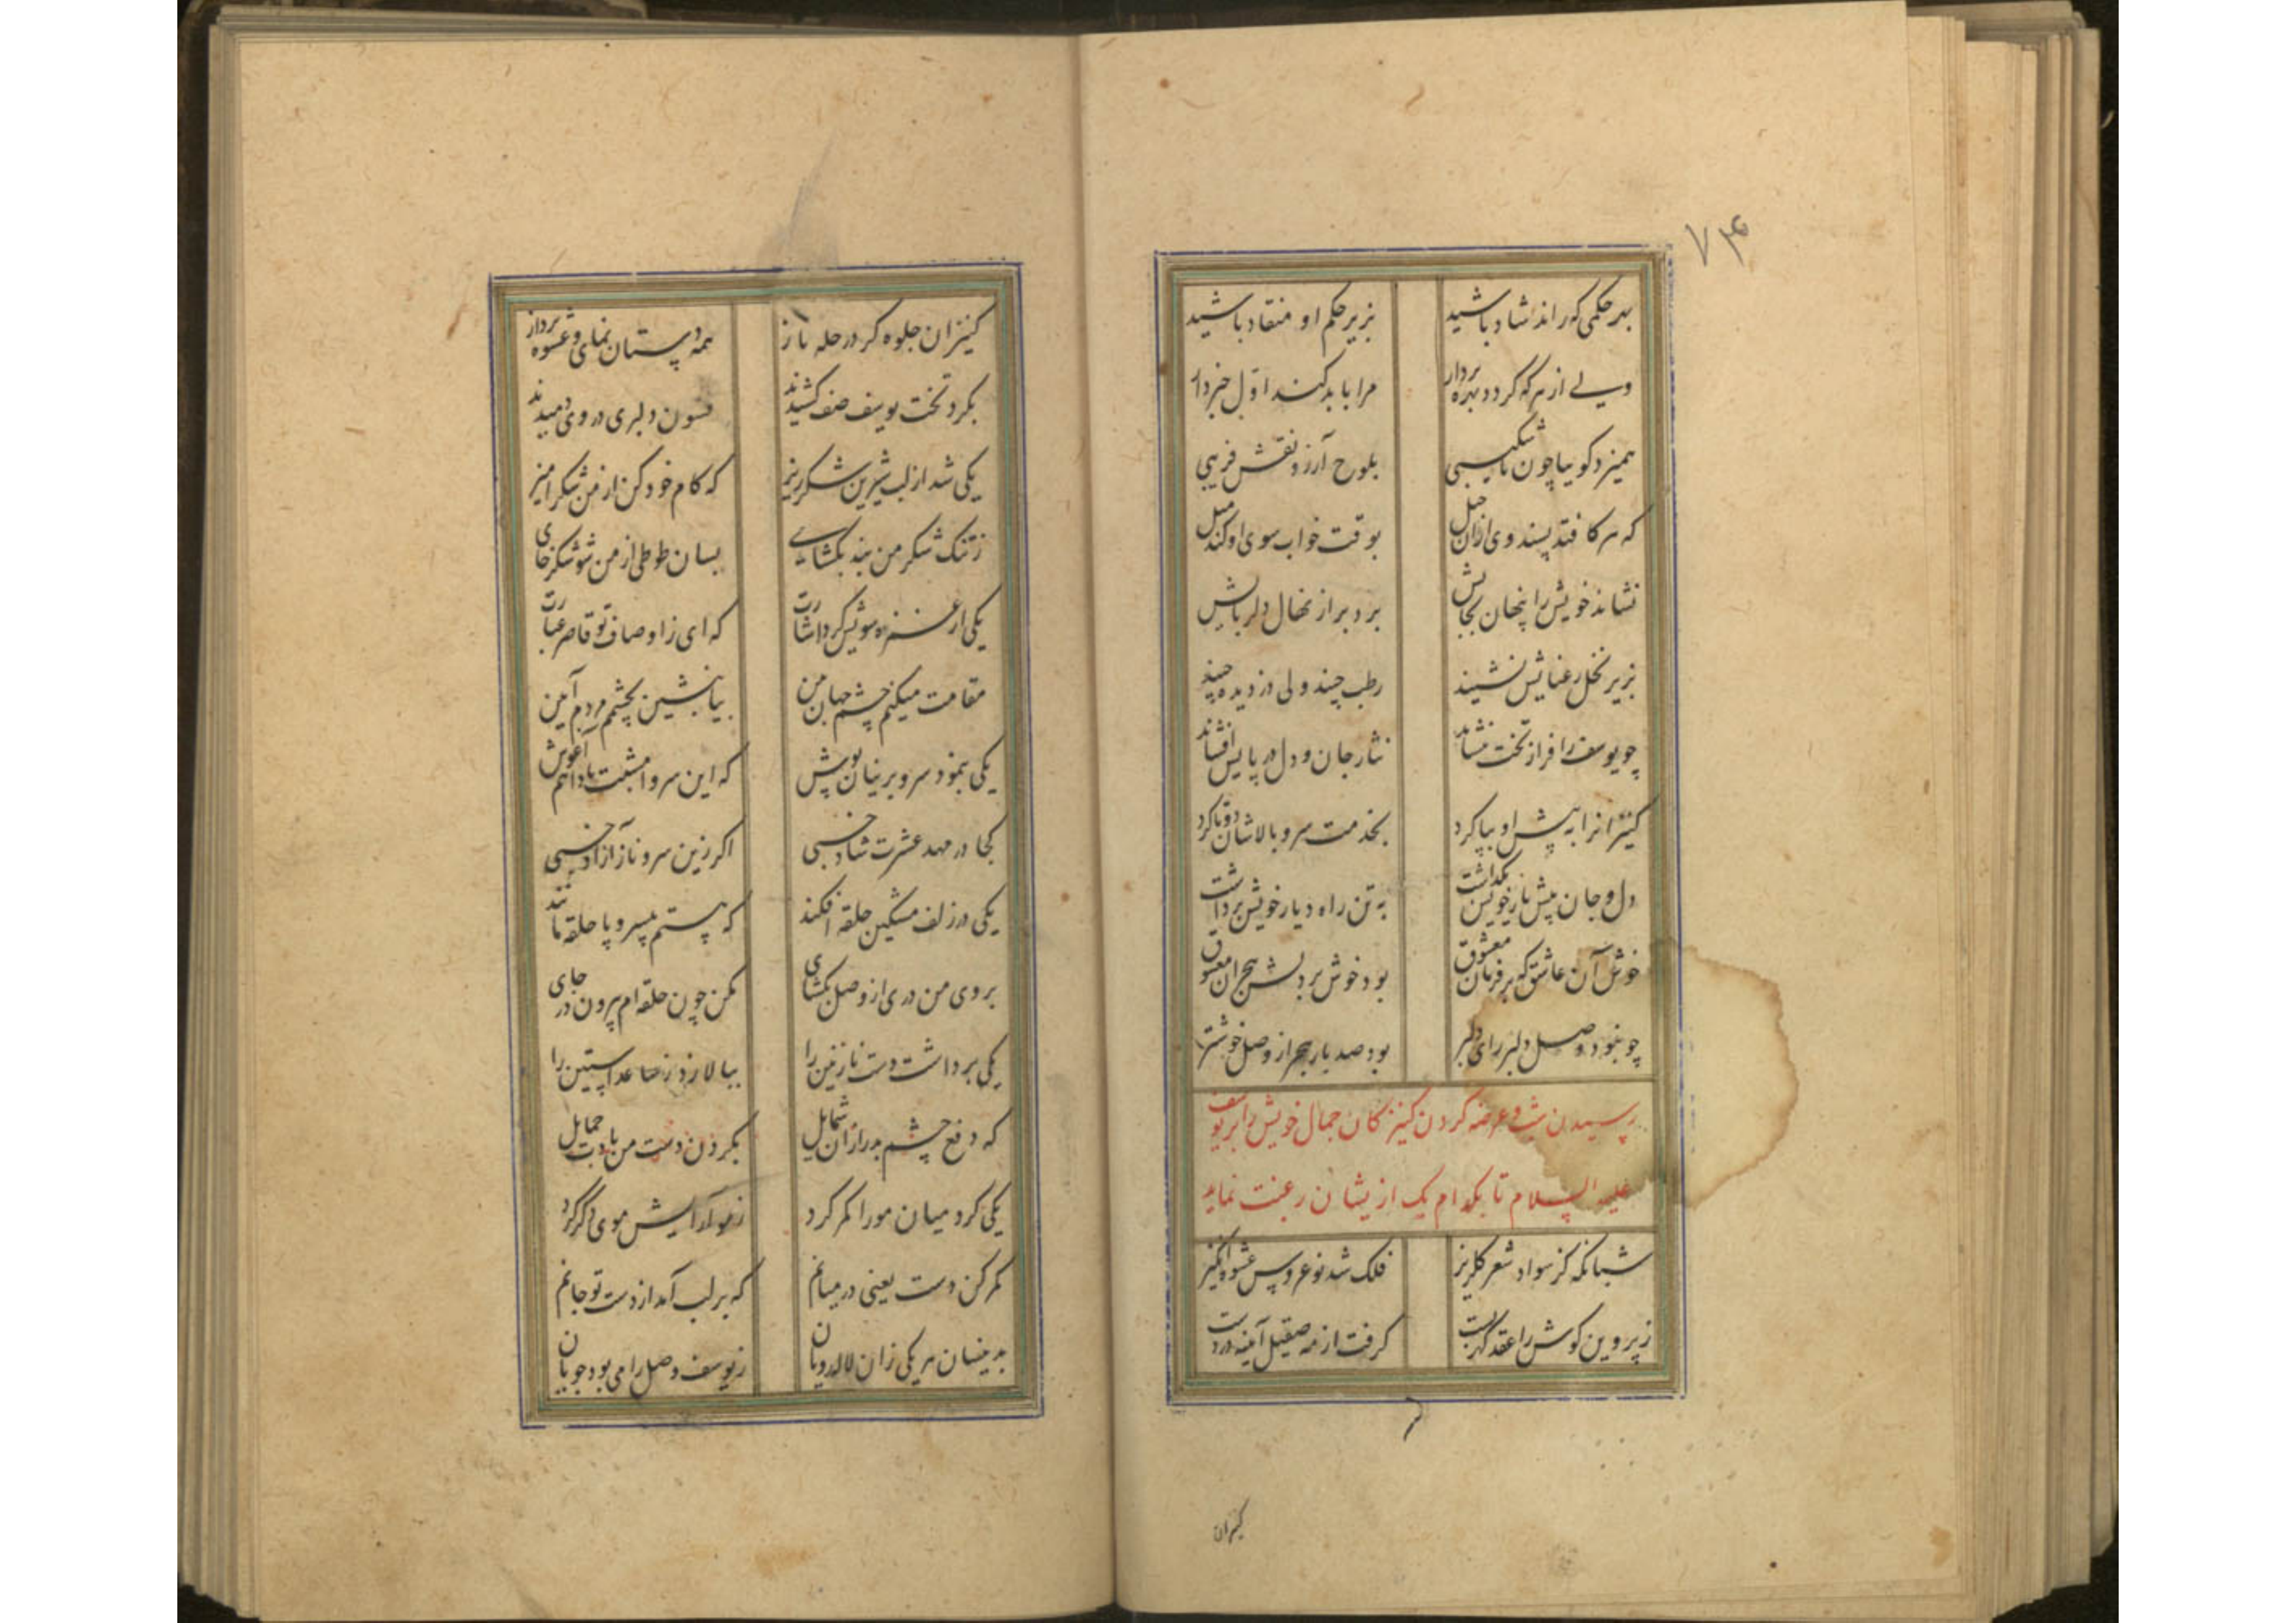 ۷۴
بهر حکمی که راند شاد باشید بزیر حکم او منقاد باشید
ولے از هر که گردد بهره بردار مرا باید کند اول خبردار
همیزد کوییا چون ناشکیبی بلوح آرزو نقش فریبی
که هر کافتد پسند وی ازان خیل بوقت خواب سوی او کند میل
نشاند خویش را پنهان بجایش برد بر از نهال دلربایش
بزیر نخل رعنایش نشیند رطب چیند ولی دزدیده چیند
چو یوسف را فراز تخت بنشاند نثار جان و دل در پایش افشاند
کنیزانرا به پیش او بپا کرد بخدمت سرو بالاشان دوتا کرد
دل و جان پیش یار خویش بگذاشت به تن راه دیار خویش برداشت
خوش آن عاشق که بر فرمان معشوق بود خوش بر دلش هجران معشوق
چو نبود وصل دلبر رای دلبر بود صد بار هجر از وصل خوشتر
رسیدن شب و عرضه کردن کنیزکان جمال خویش را بر یوسف
علیه السلام تا بکدام یک از یشان رغبت نماید
شبانکه کز سواد شعر کلریز فلک شد نوعروس عشوه انگیز
ز پروین کوش را عقد کهر بست کرفت از مه صقیل آینه در دست
کنیزان
کنیزان جلوه کر در حله ناز همه دستان نمای و عشوه پرداز
بکرد تخت یوسف صف کشیدند فسون دلبری در وی دمیدند
یکی شد از لب شیرین شکرریز که کام خود کن از من شکر امیز
ز تنک شکر من بند بکشاے بسان طوطی از من شو شکرخای
یکی از غمزه سویش کرد اشارت که ای ز اوصاف تو قاصر عبارت
مقامت میکنم چشم جهان من بیا بنشین بچشم مردم آیین
یکی بنمود سرو پرنیان پوش که این سرو امشبت بادا هم آغوش
کجا در مهد عشرت شاد خسبی اکر زین سرو ناز آزاد خسبی
یکی در زلف مشکین حلقه افکند که هستم بیسر و پا حلقه مانند
بروی من دری از وصل بکشای مکن چون حلقه ام بیرون در جای
یکی برداشت دست نازنین را ببالا زد ز ساعد آستین را
که دفع چشم بد را زان شمایل بکردن دست من بادت حمایل
یکی کرد میان مو را کمر کرد ز مو آرایش موی دکر کرد
کمر کن دست یعنی در میانم که بر لب آمد از دست تو جانم
بدینسان هر یکی زان لاله رویان ز یوسف وصل را می بود جویان